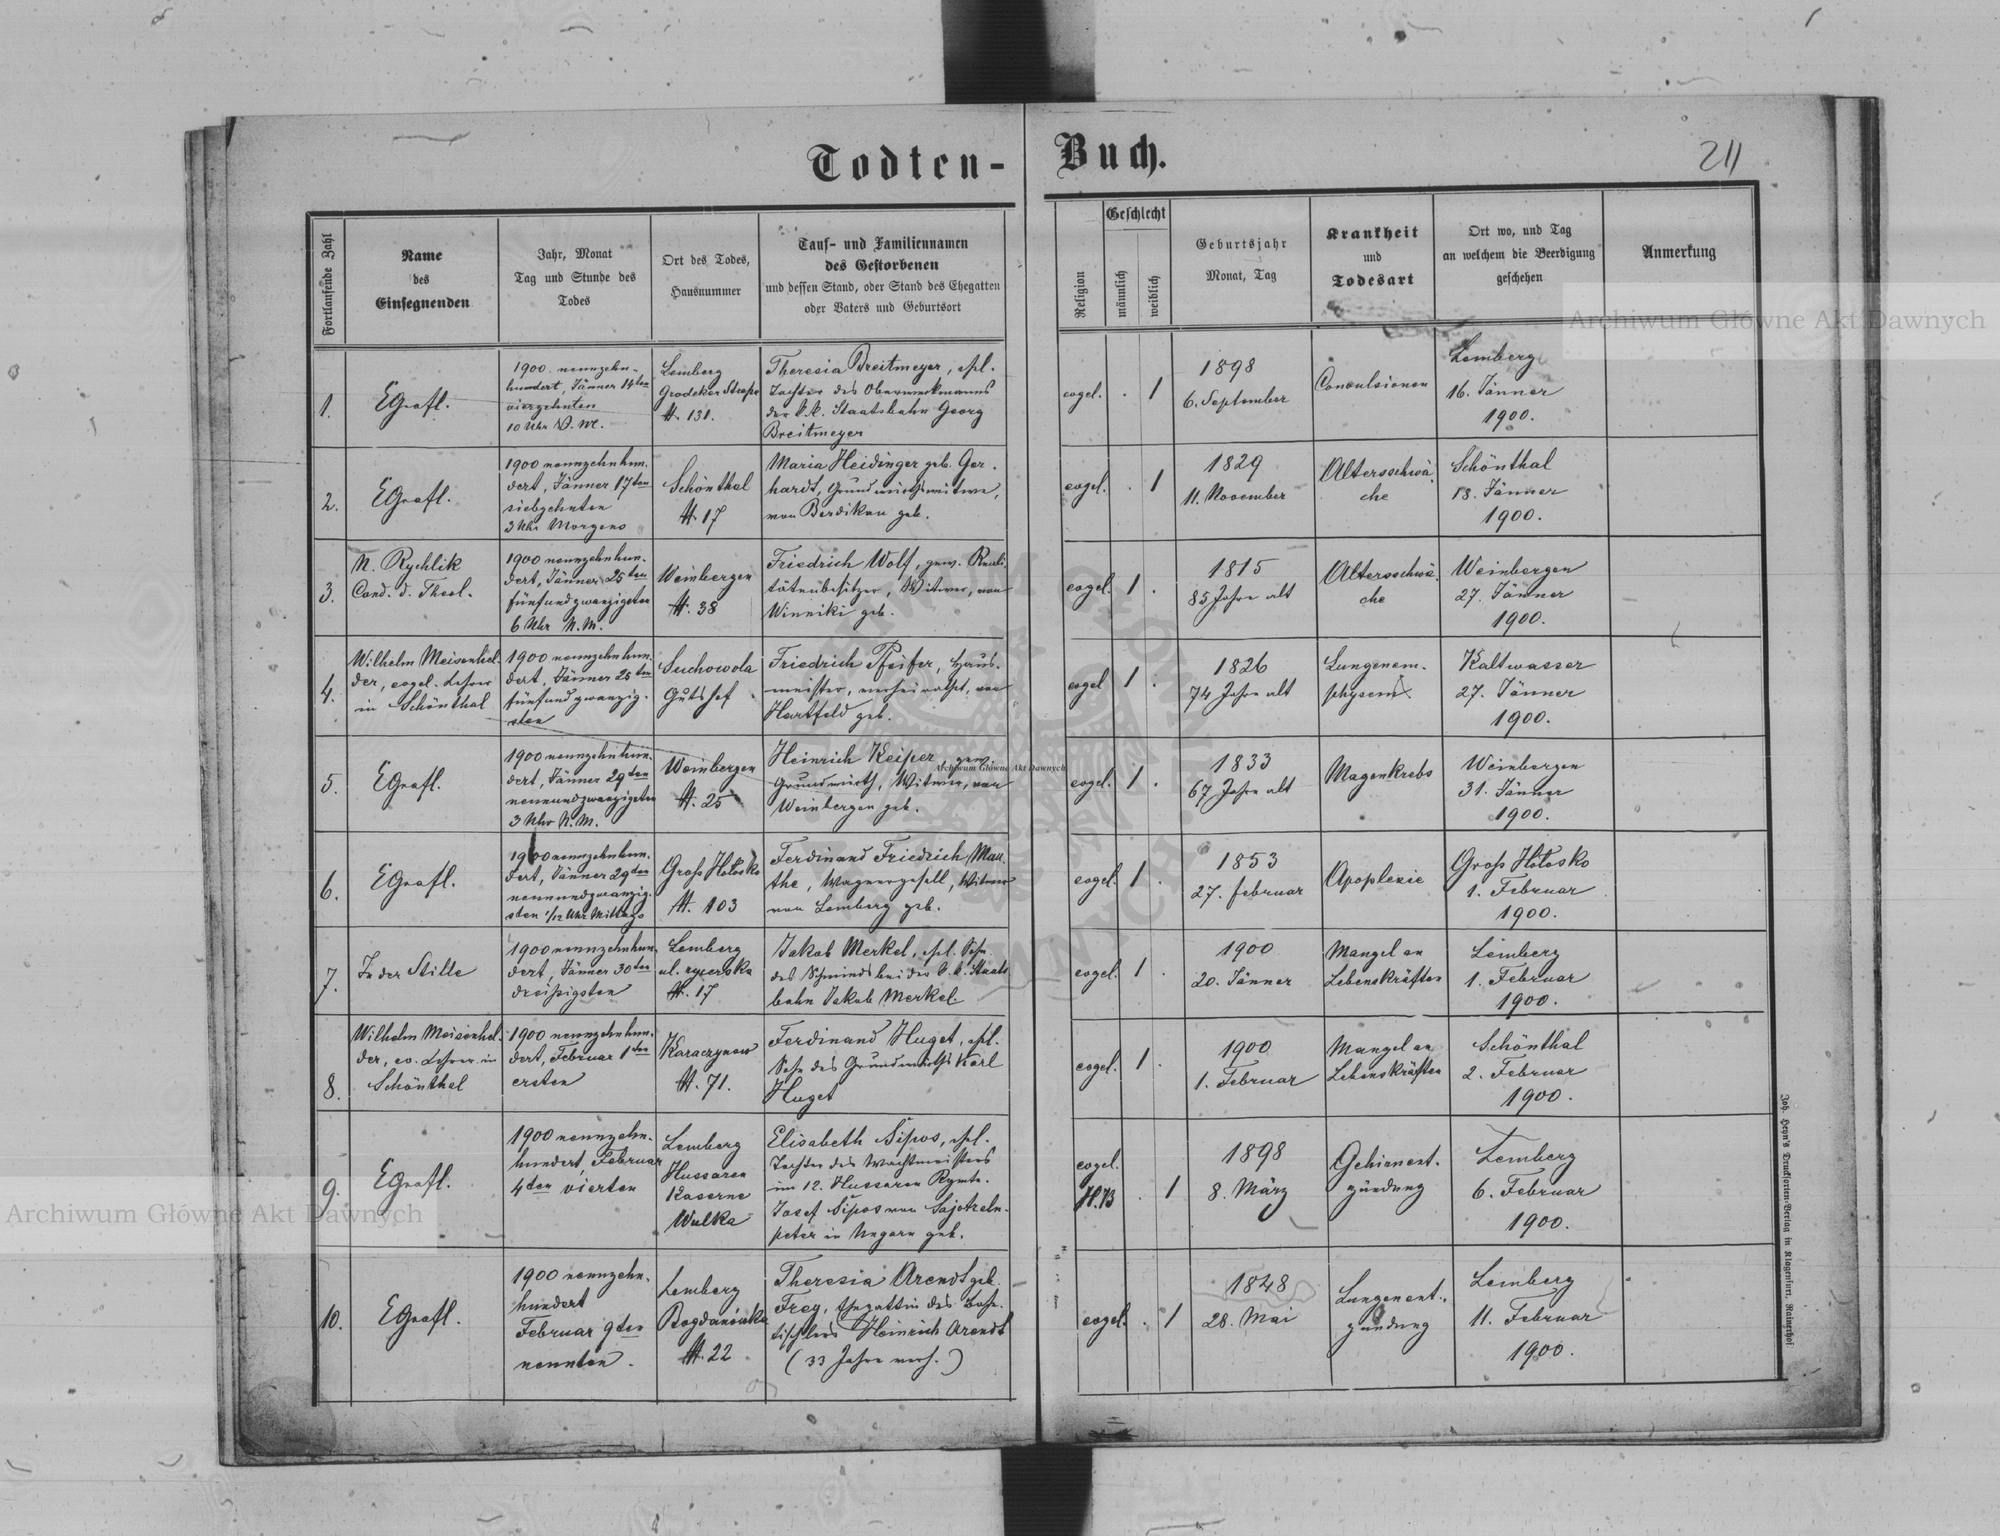 Todten-
Buch.
211
Fortlaufende Zahl
Name
des
Einsegnenden
Jahr, Monat
Tag und Stunde des
Todes
Ort des Todes,
Hausnummer
Tauf- und Familiennamen
des Gestorbenen
und dessen Stand, oder Stand des Ehegatten
oder Vaters und Geburtsort
Religion
Geschlecht
männlich
weiblich
Geburtsjahr
Monat, Tag
Krankheit
und
Todesart
Ort wo, und Tag
an welchem die Beerdigung
geschehen
Anmerkung
Archiwum Główne Akt Dawnych
1.
EGrafl.
1900 neunzehn-
hundert, Jänner 14ten
vierzehnten
10 Uhr V. M.
Lemberg
Grodeker Straße
N. 131.
Theresia Breitmeyer, ehl.
Tochter des Oberwerkmanns
der k.k. Staatsbahn Georg
Breitmeyer
evgel. . 1
1898
6. September
Convulsionen
Lemberg
16. Jänner
1900.
2.
EGrafl.
1900 neunzehnhun-
dert, Jänner 17ten
siebzehnten
3 Uhr Morgens
Schönthal
N. 17
Maria Heidinger geb. Ger-
hardt, Grundwirthswitwe,
von Berdikau geb.
evgel. . 1
1829
11. November
Altersschwä-
che
Schönthal
18. Jänner
1900.
3.
N. Rychlik
Cand. d. Theol.
1900 neunzehnhun-
dert, Jänner 25ten
fünfundzwanzigsten
6 Uhr N. M.
Weinbergen
N. 38
Friedrich Wolf, gew. Reali-
tätenbesitzer, Witwer, von
Winniki geb.
evgel. 1 .
1815
85 Jahre alt
Altersschwä-
che
Weinbergen
27. Jänner
1900.
4.
Wilhelm Meisenhel-
der, evgel. Lehrer
in Schönthal
1900 neunzehnhun-
dert, Jänner 25ten
fünfundzwanzig-
sten
Suchowola
Gutshof
Friedrich Pfeifer, Haus-
meister, verheirathet, von
Hartfeld geb.
evgel 1 .
1826
74 Jahre alt
Lungenem-
physem
Kaltwasser
27. Jänner
1900.
5.
EGrafl.
1900 neunzehnhun-
dert, Jänner 29ten
neunundzwanzigsten
3 Uhr N. M.
Weinbergen
N. 25
Heinrich Keiper, gew.
Grundwirth, Witwer, von
Weinbergen geb.
Archiwum Główne Akt Dawnych
evgel. 1 .
1833
67 Jahre alt
Magenkrebs
Weinbergen
31. Jänner
1900.
6.
EGrafl.
1900 neunzehnhun-
dert, Jänner 29ten
neunundzwanzig-
sten 1/12 Uhr Mittags
Groß Hołosko
N. 103
Ferdinand Friedrich Mau-
the, Wagnergesell, Witwer
von Lemberg geb.
evgel. 1 .
1853
27. Februar
Apoplexie
Groß Hołosko
1. Februar
1900.
7.
In der Stille
1900 neunzehnhun-
dert, Jänner 30ten
dreißigsten
Lemberg
ul. rycerska
N. 17
Jakob Merkel, ehl. Sohn
des Schmieds bei der k.k. Staats-
bahn Jakob Merkel
evgel. 1 .
1900
20. Jänner
Mangel an
Lebenskräften
Lemberg
1. Februar
1900.
8.
Wilhelm Meisenhel-
der, ev. Lehrer in
Schönthal
1900 neunzehnhun-
dert, Februar 1ten
ersten
Karaczynow
N. 71.
Ferdinand Huget, ehl.
Sohn des Grundwirths Karl
Huget
evgel. 1 .
1900
1. Februar
Mangel an
Lebenskräften
Schönthal
2. Februar
1900.
9.
EGrafl.
1900 neunzehn-
hundert, Februar
4ten vierten
Lemberg
Hussaren
Kaserne
Wulka
Elisabeth Sipos, ehl.
Tochter des Wachtmeisters
im 12. Hussaren Rgmte.
Josef Sipos von
peter in Ungarn geb.
evgel.
H.B . 1
1898
8. März
Gehirnent-
zündung
Lemberg
6. Februar
1900.
Archiwum Główne Akt Dawnych
10.
EGrafl.
1900 neunzehn-
hundert
Februar 9ten
neunten.
Lemberg
Bogdanówka
N. 22
Theresia Arendt geb.
Frey, Ehegattin des Bahn-
tischlers Heinrich Arendt
(33 Jahre verh.)
evgel. . 1
1848
28. Mai
Lungenent-
zündung
Lemberg
11. Februar
1900.
Joh. Heyn's Drucksorten-Verlag in Klagenfurt, Rainerhof